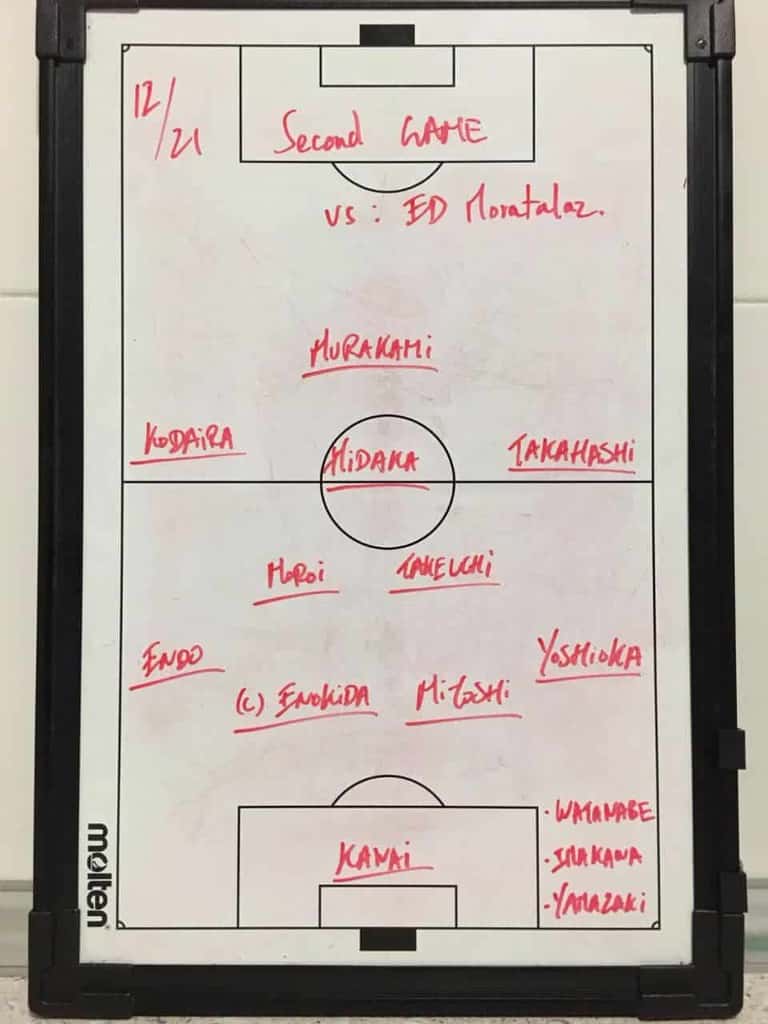 12/21
Second GAME
vs: ED Moratalaz.
MURAKAMi
KODAiRA
HiDAKA
TAKAHASHi
MOROi
TAKEUCHi
ENDO
YOSHiOKA
(c) ENOKiDA
MiTOSHi
KANAi
• WATANABE
• IMAKAWA
• YAMAZAKi
molten